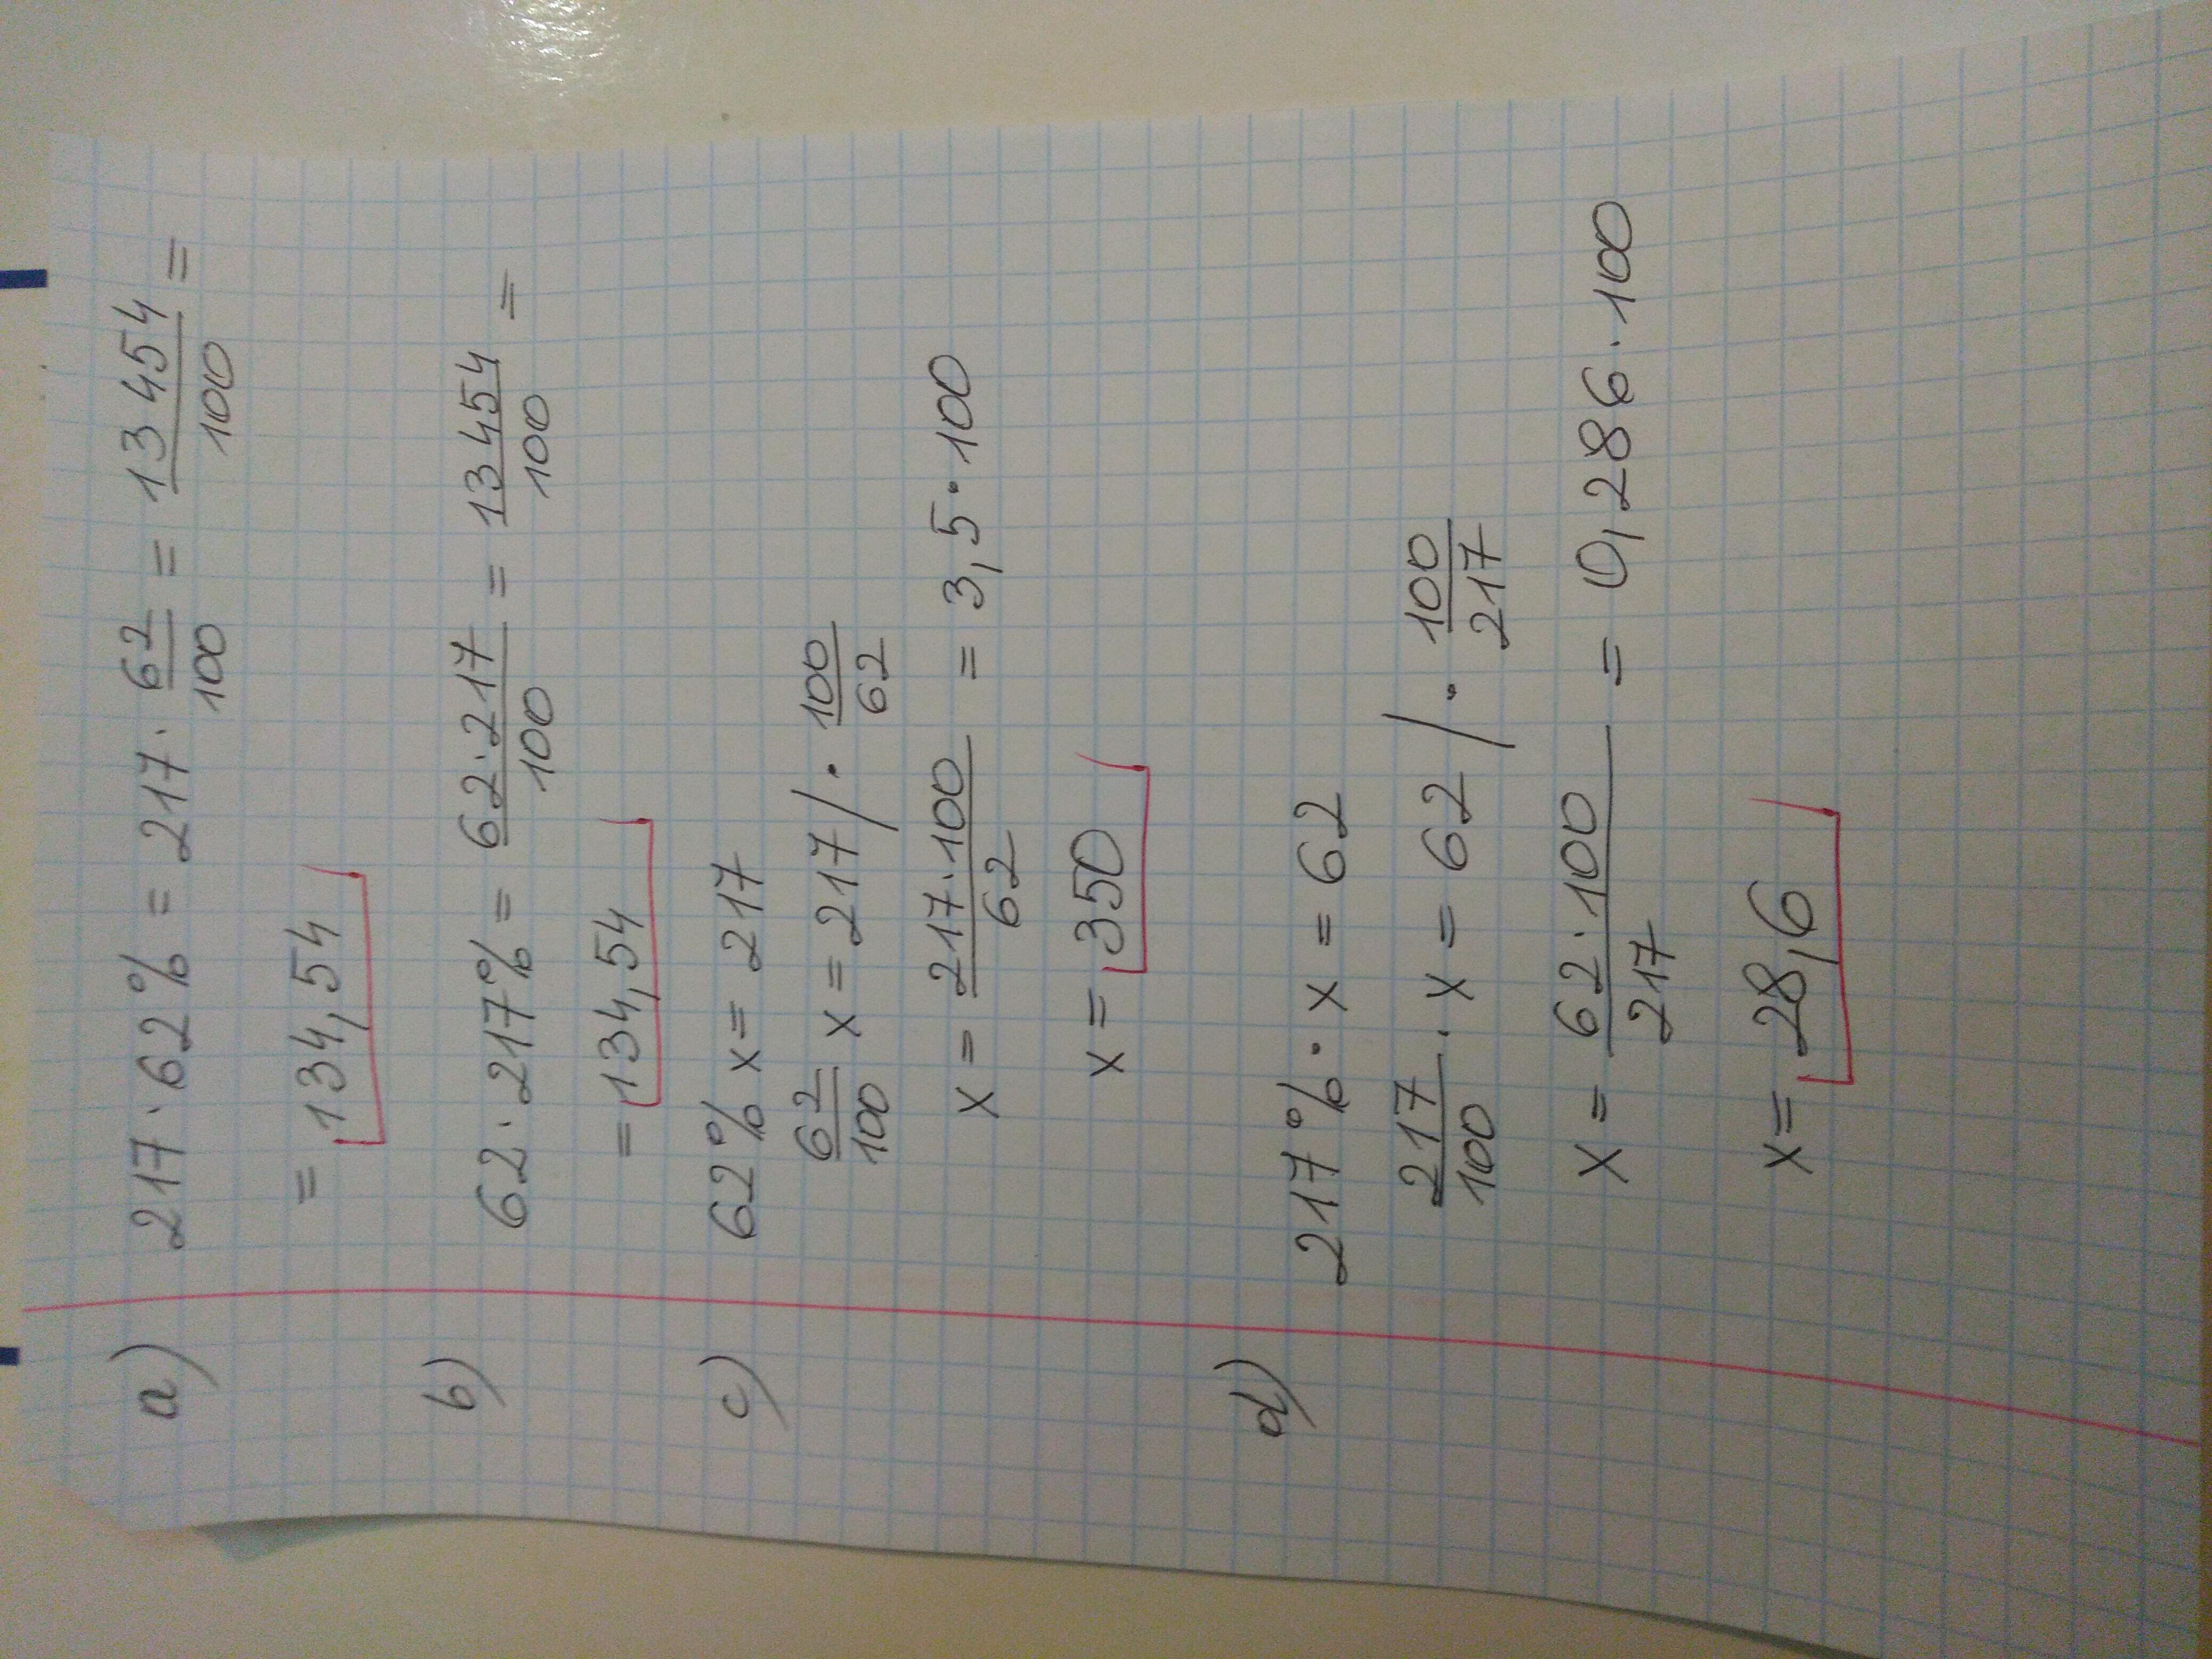 a) 217 · 62% = 217 · 62/100 = 13 454/100 =
= 134,54
b) 62 · 217% = 62 · 217/100 = 13 454/100 =
= 134,54
c) 62% x = 217
62/100 x = 217 / · 100/62
x = 217 · 100/62 = 3,5 · 100
x = 350
d) 217% · x = 62
217/100 · x = 62 / · 100/217
x = 62 · 100/217 = 0,286 · 100
x = 28,6